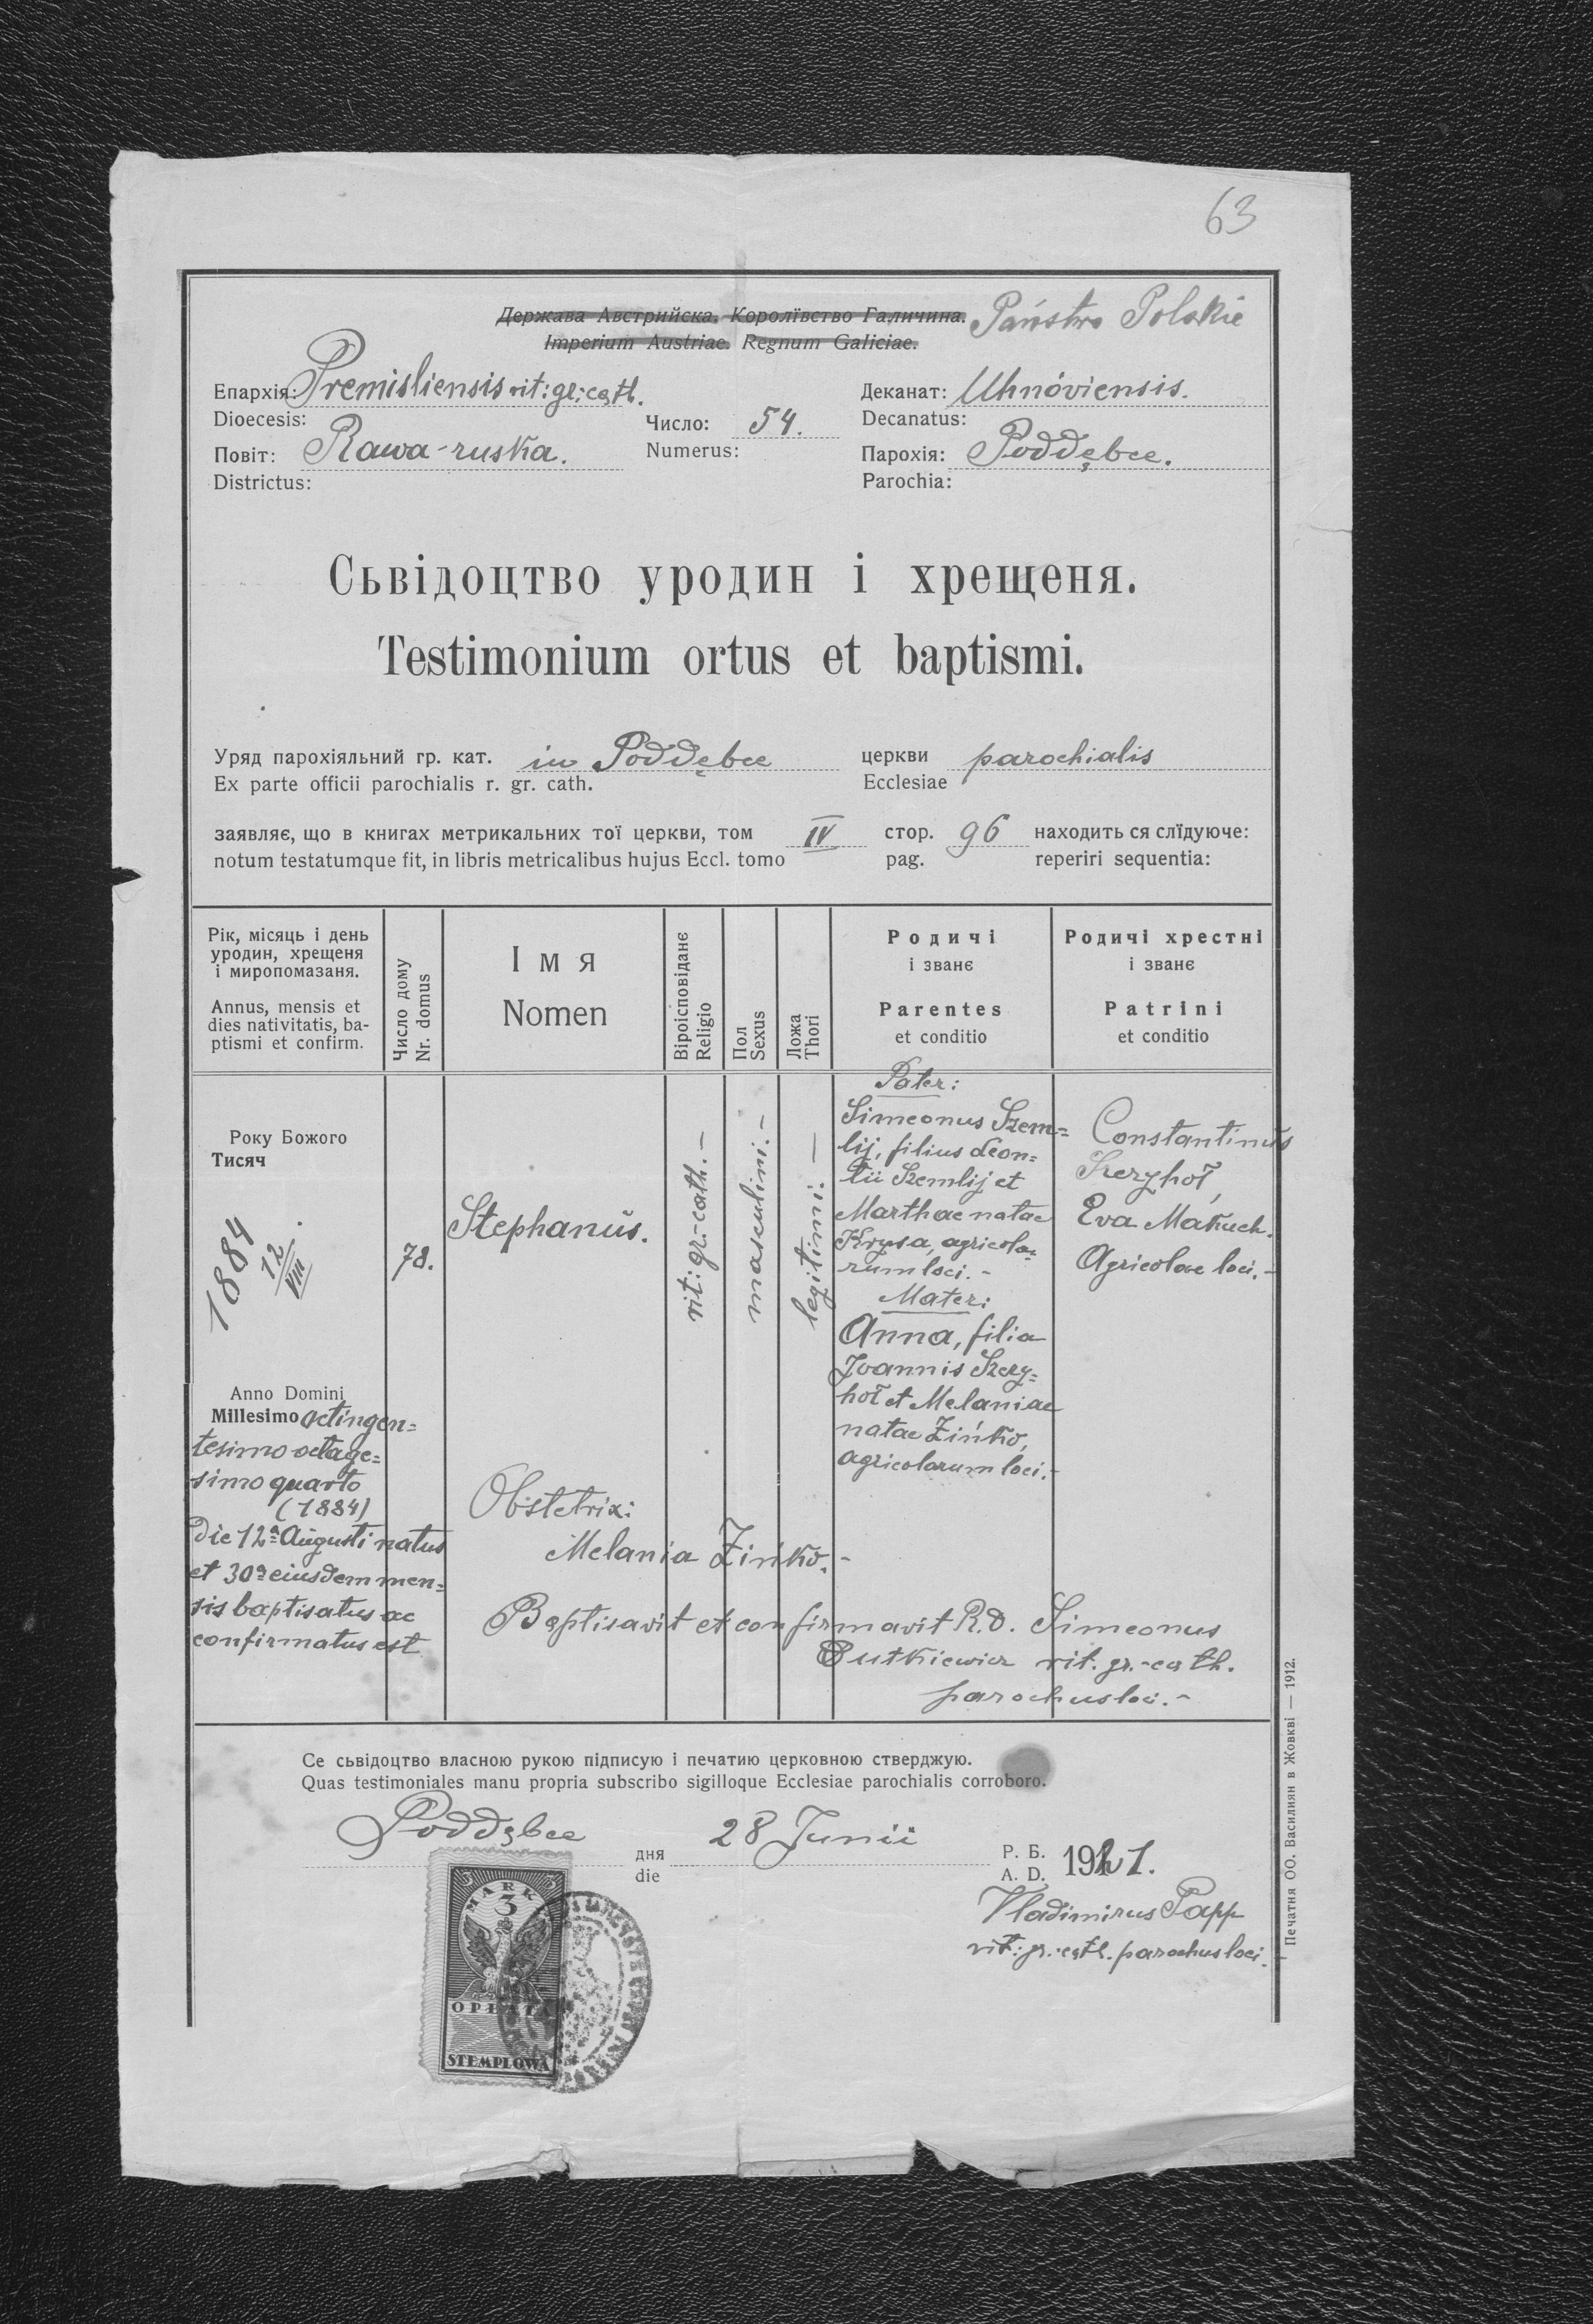 63
Держава Австрийска. Королївство Галичина. Państwo Polskie
Imperium Austriae. Regnum Galiciae.
Епархія: Premisliensis rit: gr: cath.
Dioecesis:
Число: 54.
Numerus:
Деканат: Uhnóviensis.
Decanatus:
Повіт: Rawa-ruska.
Districtus:
Парохія: Poddębce.
Parochia:
Сьвідоцтво уродин і хрещеня.
Testimonium ortus et baptismi.
Уряд парохіяльний гр. кат. in Poddębce церкви parochialis
Ex parte officii parochialis r. gr. cath. Ecclesiae
заявляє, що в книгах метрикальних тої церкви, том IV стор. 96 находить ся слїдуюче:
notum testatumque fit, in libris metricalibus hujus Eccl. tomo pag. reperiri sequentia:
Рік, місяць і день
уродин, хрещеня
і миропомазаня.
Annus, mensis et
dies nativitatis, ba-
ptismi et confirm.
Число дому
Nr. domus
Імя
Nomen
Віроісповіданє
Religio
Пол
Sexus
Ложа
Thori
Родичі
і званє
Parentes
et conditio
Родичі хрестні
і званє
Patrini
et conditio
Року Божого
Тисяч
1884
12
VIII
Anno Domini
Millesimo octingen=
tesimo octage=
simo quarto
(1884)
die 12ª Augusti natus
et 30ª eiusdem men=
sis baptisatus ac
confirmatus est
78.
Stephanus.
rit: gr.-cath. -
masculini. -
legitimi. -
Pater:
Simeonus Szem=
lij, filius Leon=
tii Szemlij et
Marthae natae
Krysa, agricola=
rum loci. -
Mater:
Anna, filia
Joannis Szczy=
hoł et Melaniae
natae Zińko,
agricolarum loci. -
Constantinus
Szczyhoł,
Eva Makuch.
Agricolae loci. -
Obstetrix:
Melania Zińko. -
Baptisavit et confirmavit R.D. Simeonus
Sutkiewicz rit. gr.-cath.
parochus loci. -
Се сьвідоцтво власною рукою підписую і печатию церковною стверджую.
Quas testimoniales manu propria subscribo sigilloque Ecclesiae parochialis corroboro.
Poddębce дня 28 Junii Р. Б. 1921.
die A. D.
Vladimirus Papp
rit: gr.-cath. parochus loci.
MARK
3
OPŁATA
STEMPLOWA
Печатня ОО. Василиян в Жовкві — 1912.